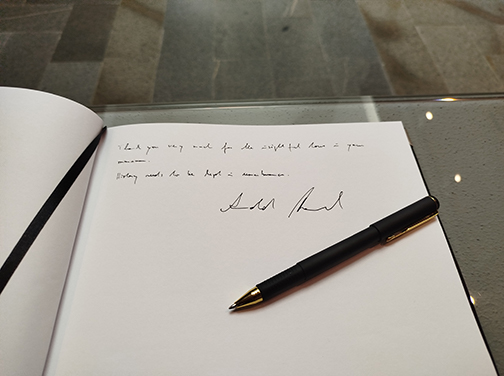 Thank you very much for the insightful tour in your
museum.
History needs to be kept in remembrance.